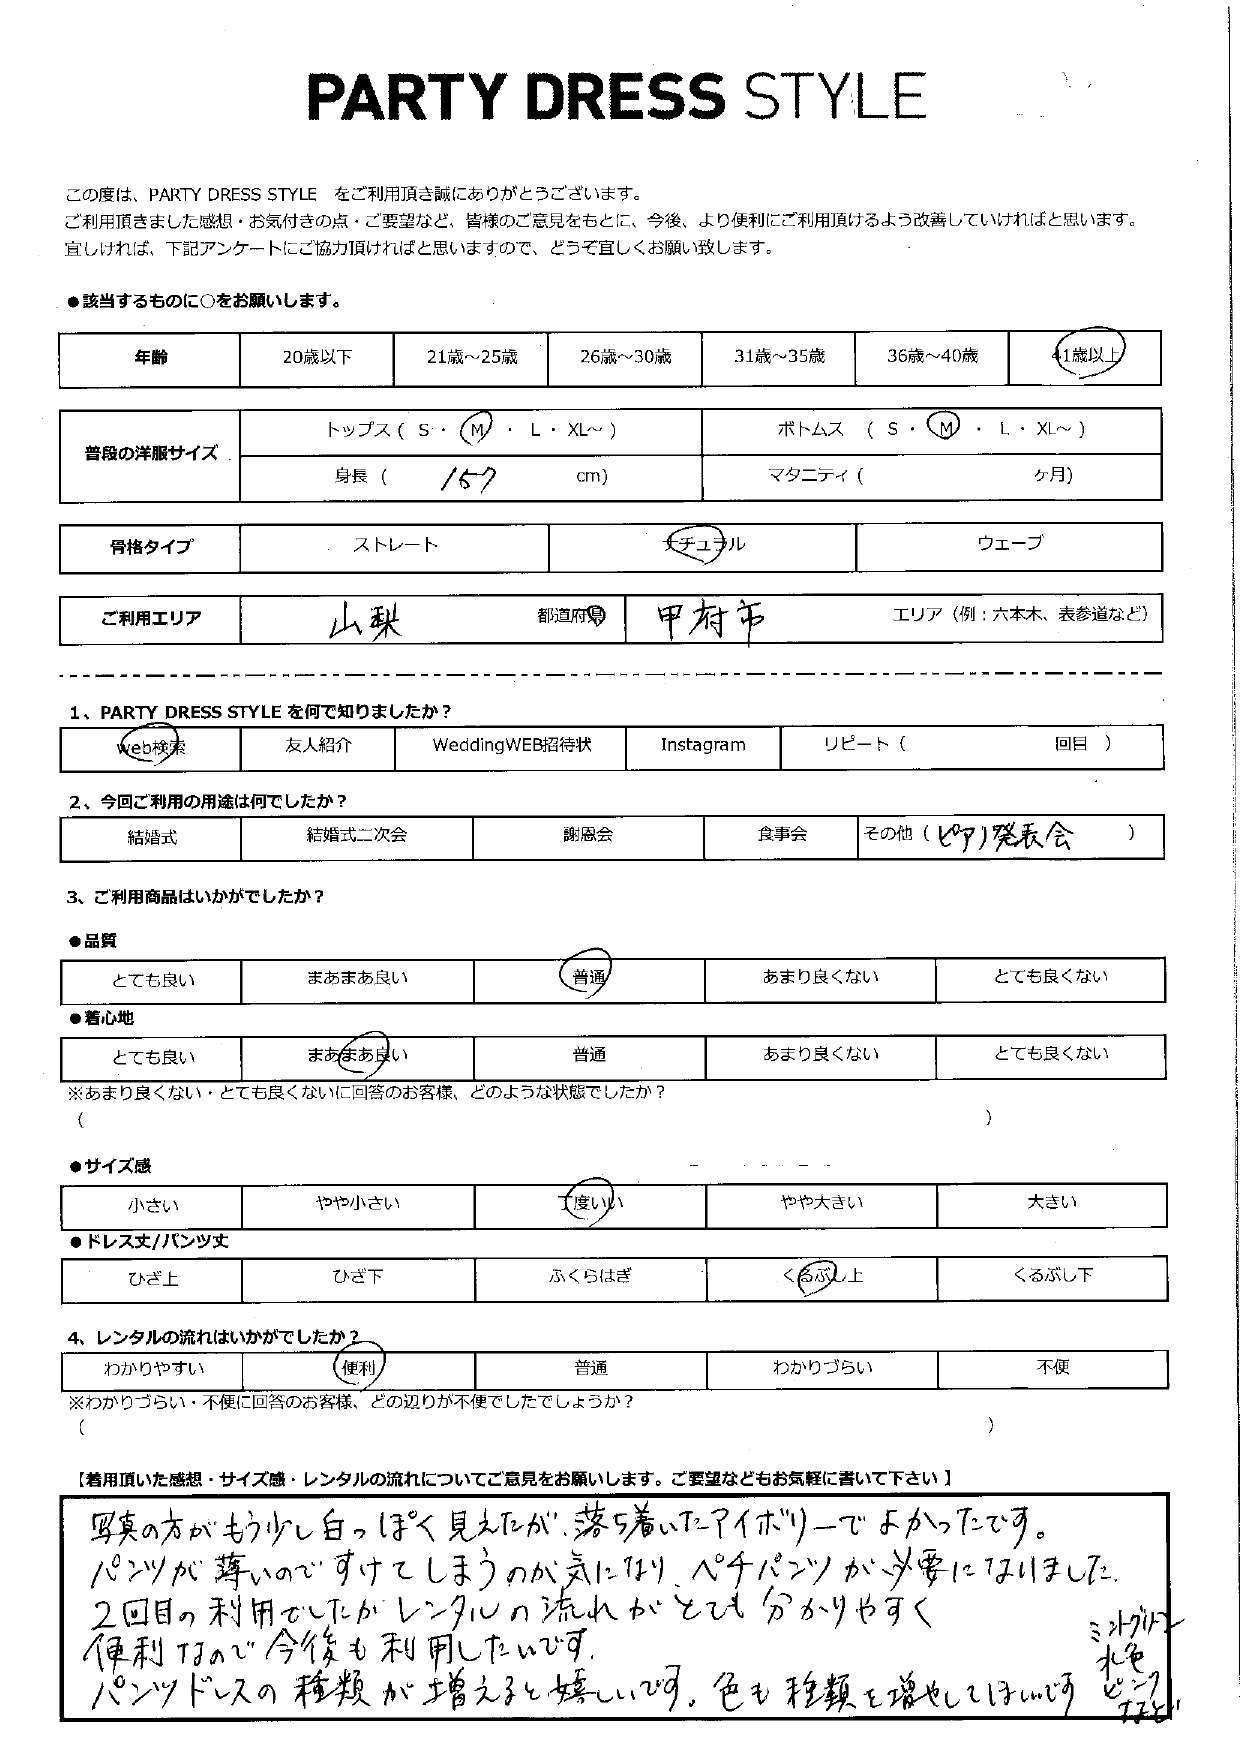 PARTY DRESS STYLE
この度は、PARTY DRESS STYLE をご利用頂き誠にありがとうございます。
ご利用頂きました感想・お気付きの点・ご要望など、皆様のご意見をもとに、今後、より便利にご利用頂けるよう改善していければと思います。
宜しければ、下記アンケートにご協力頂ければと思いますので、どうぞ宜しくお願い致します。
●該当するものに○をお願いします。
年齢 20歳以下 21歳～25歳 26歳～30歳 31歳～35歳 36歳～40歳 41歳以上
普段の洋服サイズ
トップス ( S ・ M ・ L ・ XL～ ) ボトムス ( S ・ M ・ L ・ XL～ )
身長 ( 157 cm) マタニティ ( ヶ月)
骨格タイプ ストレート ナチュラル ウェーブ
ご利用エリア 山梨 都道府県 甲府市 エリア（例：六本木、表参道など）
1、PARTY DRESS STYLE を何で知りましたか？
web検索 友人紹介 WeddingWEB招待状 Instagram リピート ( 回目 )
2、今回ご利用の用途は何でしたか？
結婚式 結婚式二次会 謝恩会 食事会 その他 ( ピアノ発表会 )
3、ご利用商品はいかがでしたか？
●品質
とても良い まあまあ良い 普通 あまり良くない とても良くない
●着心地
とても良い まあまあ良い 普通 あまり良くない とても良くない
※あまり良くない・とても良くないに回答のお客様、どのような状態でしたか？
( )
●サイズ感
小さい やや小さい 丁度いい やや大きい 大きい
●ドレス丈/パンツ丈
ひざ上 ひざ下 ふくらはぎ くるぶし上 くるぶし下
4、レンタルの流れはいかがでしたか？
わかりやすい 便利 普通 わかりづらい 不便
※わかりづらい・不便に回答のお客様、どの辺りが不便でしたでしょうか？
( )
【着用頂いた感想・サイズ感・レンタルの流れについてご意見をお願いします。ご要望などもお気軽に書いて下さい】
写真の方がもう少し白っぽく見えたが、落ち着いたアイボリーでよかったです。
パンツが薄いのですけてしまうのが気になり、ペチパンツが必要になりました。
2回目の利用でしたがレンタルの流れがとても分かりやすく
便利なので今後も利用したいです。
パンツドレスの種類が増えると嬉しいです。色も種類を増やしてほしいです
ミントグリーン
水色
ピンク
など